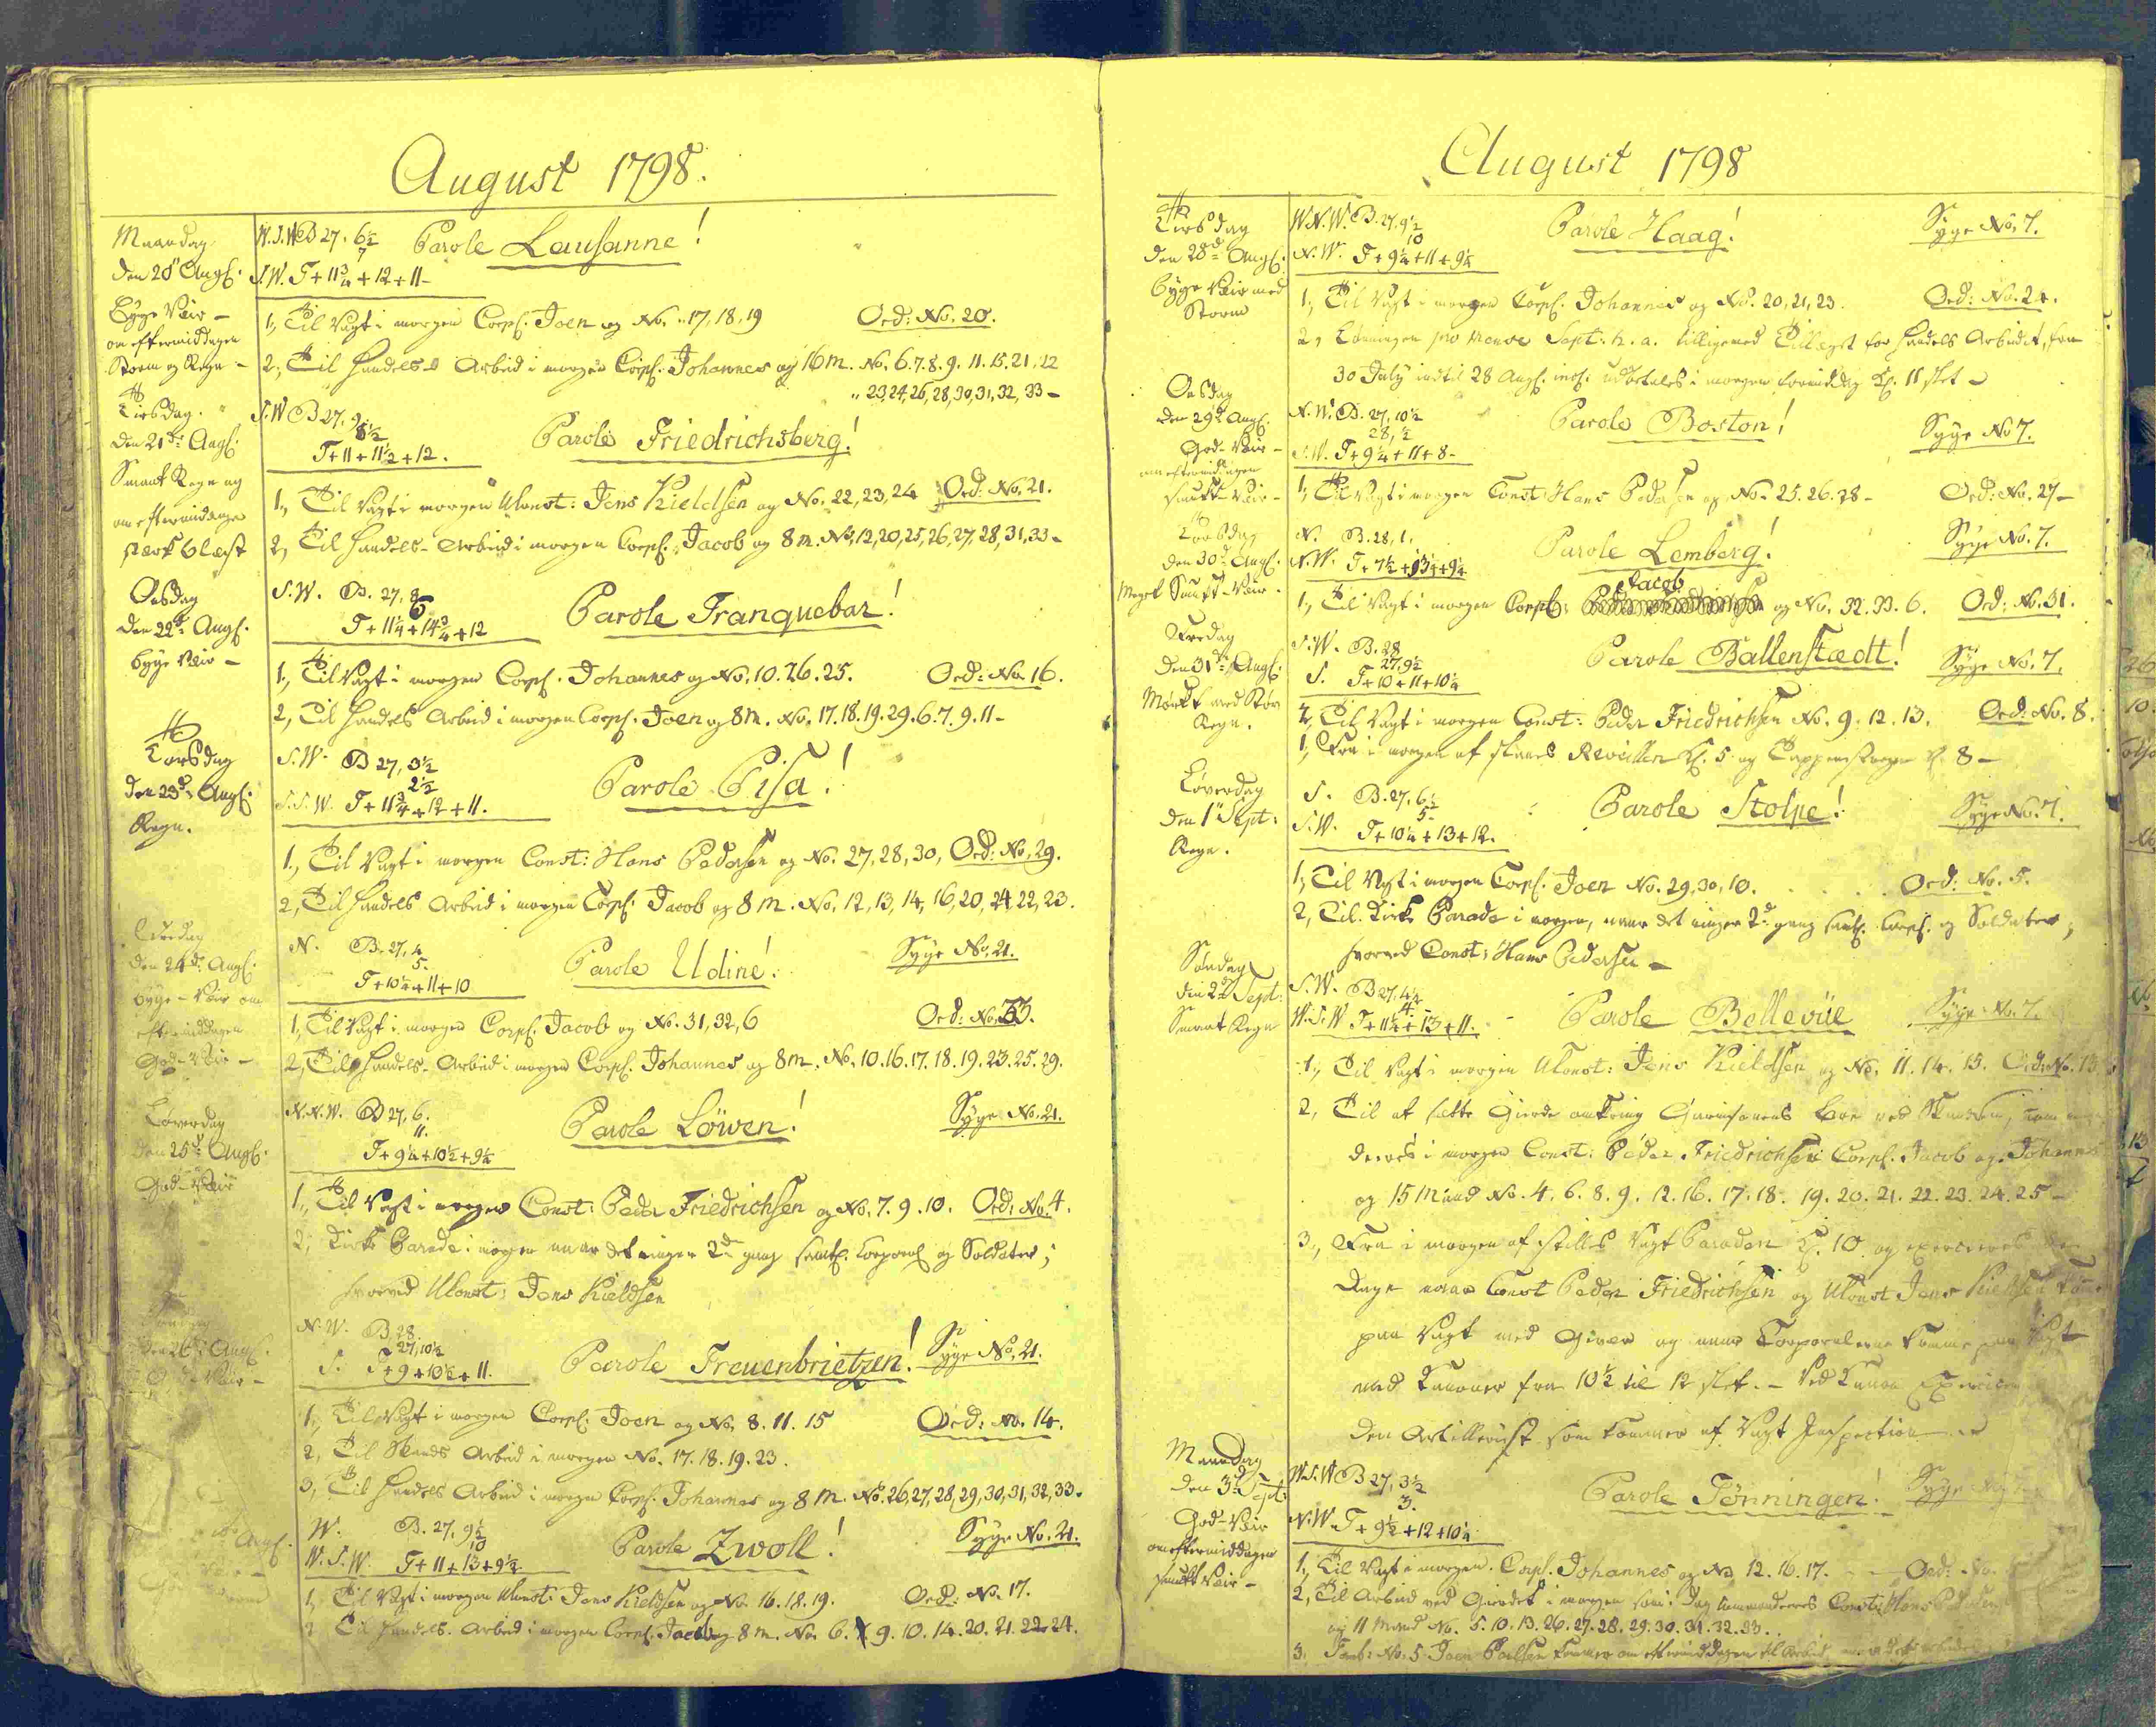 August 1798.
Maandag
den 20d Augs:
W.S.W B 27. 6½
7
S.W. T + 11¾ + 12 + 11 -
Parole Lausanne!
Byge Veir -
om eftermiddagen
Storm og Regn -
1, Til Vagt i morgen Corpl. Joen og No. 17, 18, 19 Ord: No. 20.
2, Til Handels Arbeid i morgen Corpl. Johannes og 16 m. No. 6. 7. 8. 9. 11. 15. 21, 22
23, 24, 26, 28, 30, 31, 32, 33 -
Tirsdag.
den 21de Augs:
S.W B 27, 9
8½
T + 11 + 11½ + 12.
Parole Friedrichsberg!
Smaat Regn og
om eftermiddagen
stærk blæst
1, Til Vagt i morgen Ukonst: Jens Kieldsen og No. 22, 23, 24 Ord: No. 21.
2, Til Handels - Arbeid i morgen Corpl. Jacob og 8 m. No. 12, 20, 25, 26, 27, 28, 31, 33 -
Onsdag
den 22de Augs:
Byge Veir -
S.W. B. 27, 8
6
T + 11¼ + 14¾ + 12
Parole Tranquebar!
1, Til Vagt i morgen Corpl. Johannes og No. 10. 26. 25. Ord: No 16.
2, Til Handels Arbeid i morgen Corpl. Joen og 8 m. No. 17. 18. 19. 29. 6. 7. 9. 11 -
Torsdag
den 23de Augs:
Regn.
S.W. B 27, 3½
2½
S.S.W. T + 11¾ + 12 + 11.
Parole Pisa!
1, Til Vagt i morgen Const: Hans Pedersen og No. 27, 28, 30, Ord: No. 29.
2, Til Handels Arbeid i morgen Corpl. Jacob og 8 m. No. 12, 13, 14, 16, 20, 24 22, 23.
Fredag
den 24de Augs:
Byge - Veir om
eftermiddagen
God - Veir -
N. B. 27, 4
5.
T + 10¼ + 11 + 10
Parole Udine! Syge No. 21.
1, Til Vagt i morgen Corpl. Jacob og No. 31, 32, 6 Ord: No. 33.
2, Til Handels - Arbeid i morgen Corpl. Johannes og 8 m. No. 10. 16. 17. 18. 19. 23. 25. 29.
Løverdag
den 25de Augs:
God - Veir
N.N.W. B 27, 6.
11.
T + 9¼ + 10½ + 9¼
Parole Löwen! Syge No. 21.
1, Til Vagt i morgen Const: Peder Friedrichsen og No. 7. 9. 10. Ord: No. 4.
2, Kirke Parade i morgen naar det ringer 2de gang samtl. Corporal og Soldater;
hvorved Ukonst: Jens Kieldsen
Søndag
den 26de Augs:
God Veir -
N.W. B 28
27, 10½
S. T + 9 + 10½ + 11.
Parole Treuenbrietzen! Syge No. 21.
1, Til Vagt i morgen Corpl. Joen og No. 8. 11. 15 Ord: No. 14.
2, Til Arbeid i morgen No. 17. 18. 19. 23.
3, Til Handels Arbeid i morgen Corpl. Johannes og 8 m. No. 26, 27, 28, 29, 30, 31, 32, 33.
Augs.
W. B. 27, 9½
10
W.S.W. T + 11 + 13 + 9½
Parole Zwoll! Syge No. 21.
1, Til Vagt i morgen Ukonst: Jens Kieldsen og No. 16. 18. 19. Ord: No. 17.
2 Til Handels - Arbeid i morgen Corpl. Jacob og 8 m. No. 6. 9. 10. 14. 20. 21. 22. 24.
August 1798
Tirsdag
den 28de Augs:
Byge Veir med
Storm
W.N.W. B. 27, 9½
10
N.W. T + 9¼ + 11 + 9¼
Parole Haag! Syge No. 7.
1, Til Vagt i morgen Corpl. Johannes og No. 20, 21, 23. Ord: No. 24.
2, Lønningen pro Mense Sept: h. a. tilligemed Tillæget for Handels Arbeidet, fra
30 July indtil 28 Augs. incl. udbetales i morgen formiddag Kl. 11 slet -
Onsdag
den 29de Augs:
God - Veir -
om eftermiddagen
smukt Veir -
N.W. B. 27, 10½
28, ½
S.W. T + 9¼ + 11 + 8 -
Parole Boston! Syge No 7.
1, Til Vagt i morgen Const: Hans Pedersen og No. 25. 26. 28 - Ord: No. 27 -
Torsdag
den 30te Augs:
Meget Smukt - Veir.
N. B. 28, 1.
N.W. T + 7½ + 13¼ + 9¼
Parole Lemberg! Syge No. 7.
Jacob
1, Til Vagt i morgen Corpl: og No. 32. 33. 6. Ord: No. 31.
Fredag
den 31te Augs:
Regn.
S.W. B. 28
27, 9½
S. T + 10 + 11 + 10¼
Parole Ballenstædt! Syge No. 7.
2, Til Vagt i morgen Const: Peder Friedrichsen No. 9. 12. 13. Ord: No. 8.
1, Fra i morgen af slaaes Reveillen Kl. 5 og Tappenstregen Kl. 8 -
Løverdag
den 1ste Sept:
Regn.
S. B. 27, 6½
5 -
S.W. T + 10¼ + 13 + 12.
Parole Stolpe! Syge No. 7.
1, Til Vagt i morgen Corpl. Joen No. 29, 30, 10. Ord: No. 5.
2, Til Kirke Parade i morgen, naar det ringer 2de gang samtl. Corpl. og Soldater,
hvorved Const: Hans Pedersen -
Søndag
den 2den Sept:
Smaat Regn
S.W. B 27, 4½
4 -
W.S.W T + 11½ + 13 + 11.
Parole Bellevüe Syge No. 7.
1, Til Vagt i morgen Ukonst: Jens Kieldsen og No. 11. 14. 15. Ord: No. 13
2, Til at sætte Gierde omkring Garnisonens
deres i morgen Const: Peder Friedrichsen Corpl. Jacob og Johannes
og 15 Mand No. 4. 6. 8. 9. 12. 16. 17. 18. 19. 20. 21. 22. 23. 24. 25 -
3, Fra i morgen af stilles Vagt Paraden Kl. 10 og exerceres
Dage naar Const Peder Friedrichsen og Ukonst Jens Kieldsen
paa Vagt med Gevær og naar Corporalerne komme paa Vagt
med Kanoner fra 10½ til 12 slet. - Ved Kanon Exercice
den Artillerist som kommer af Vagt Inspection
Mandag
den 3de Sept:
God - Veir
om eftermiddagen
smukt Veir -
W.S.W B 27, 3½
3.
N.W. T + 9½ + 12 + 10¼
Parole Tönningen! Syge No
1, Til Vagt i morgen. Corpl. Johannes og No. 12. 16. 17. - Ord: No.
2, Til Arbeid ved Gierdet i morgen som i dag commanderes Const: Hans Pedersen
og 11 Mand No. 5. 10. 13. 26. 27. 28. 29. 30. 31. 32. 33.
3, Tamb: No. 5 Joen Poulsen kommer om eftermiddagen til Arbeid